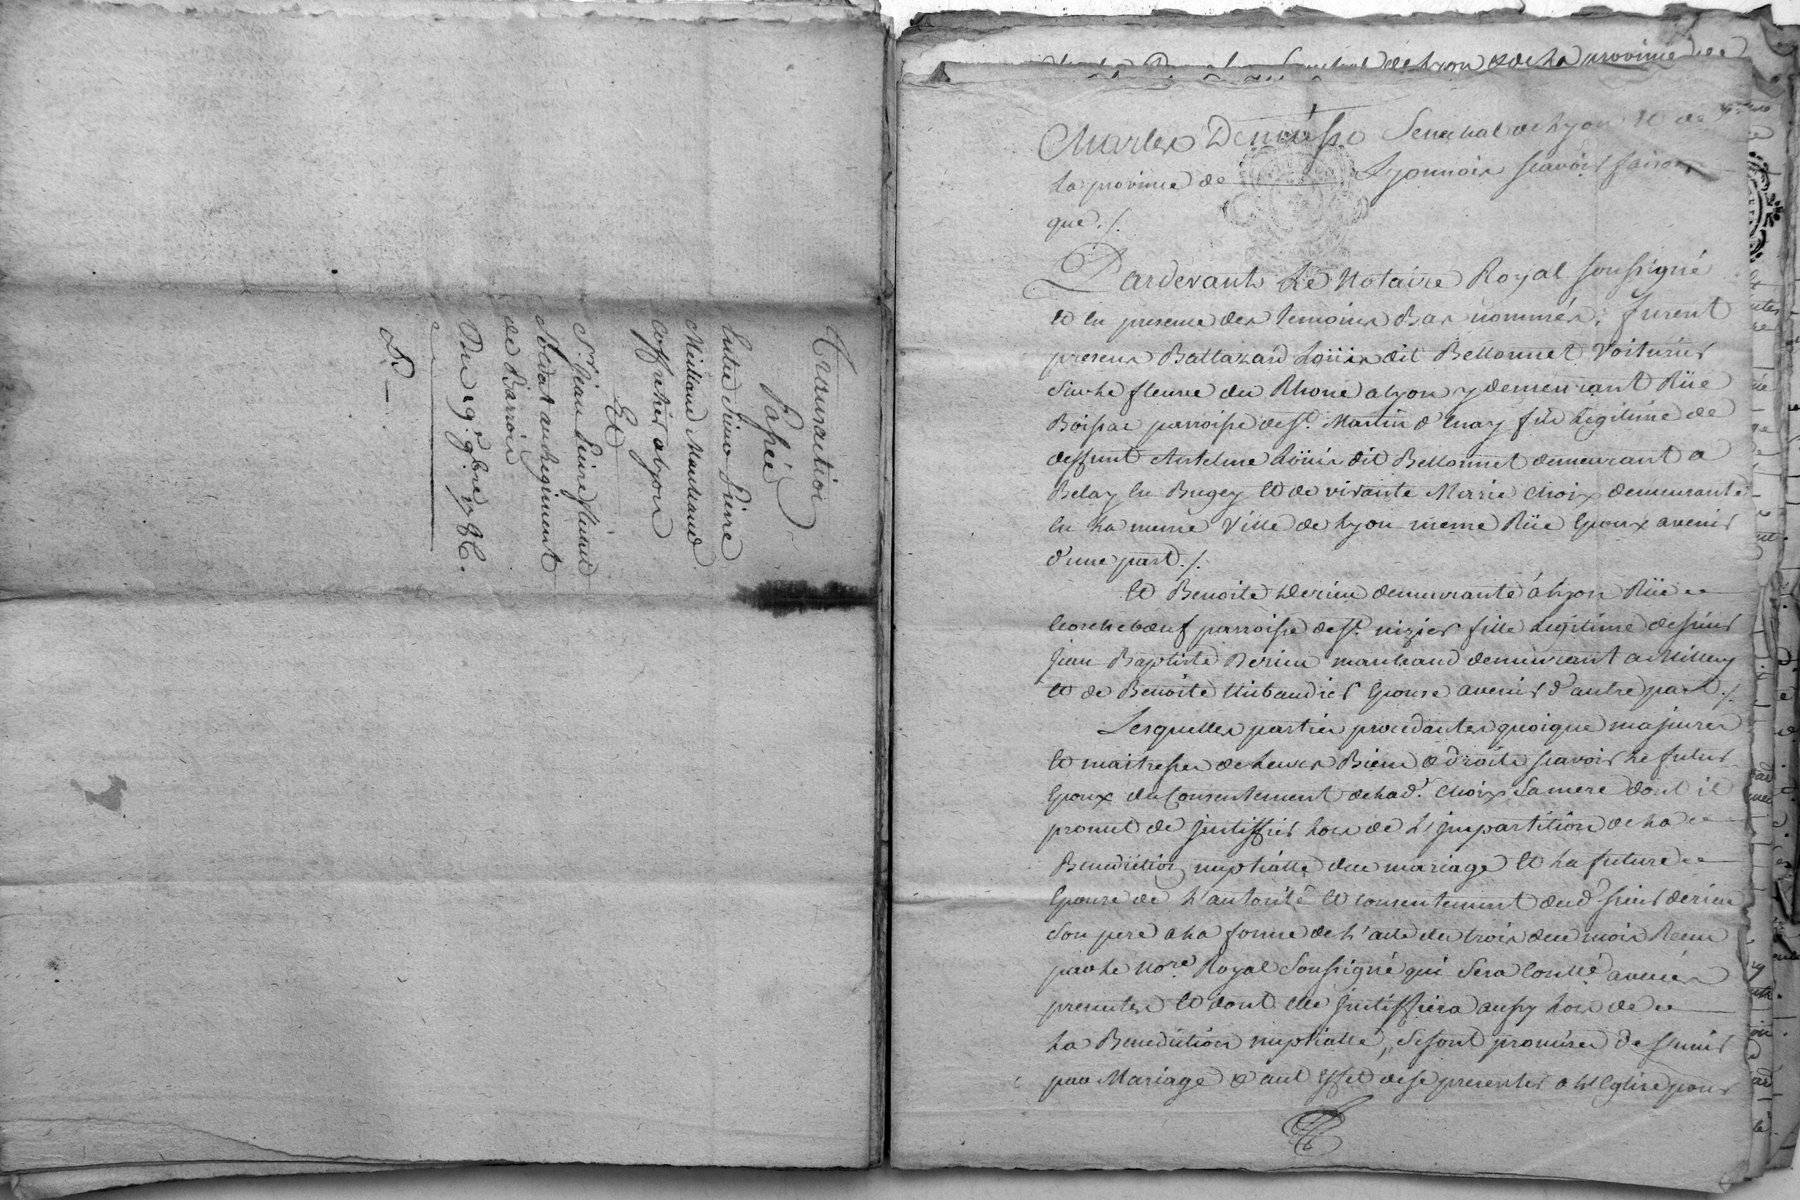 Transaction
Passée
Entre Sieur Pierre
Milliaud Marchand
Coffretier a Lyon
Et
Sr. Jean Pierre
Soldat au Regiment
de Barrois
Du 9e. 9bre 1786.
de Lyon & de la province de
Charles Denoisse Senechal de Lyon Et de
la province de Lyonnois scavoir faisons
que ./.
Pardevant Le Notaire Royal soussigné
Et En presence des temoins Bas nommés, furent
presens Baltazard Loüis dit Bellonnet Voiturier
sur le fleuve du Rhone a Lyon y demeurant Rüe
Boissac parroisse de St. Martin d'Enay fils Legitime de
deffunt Antelme Loüis dit Bellonnet demeurant a
Belay En Bugey Et de vivante Marie Choix demeurante
En La meme Ville de Lyon meme Rüe Epoux avenir
d'une part ./.
Et Benoite Derieu demeurante à Lyon Rüe
Ecorchebœuf parroisse de St. nizier fille Legitime de sieur
Jean Baptiste Derieu marchand demeurant a Millery
Et de Benoite Thibaudier Epouse avenir d'autre part ./.
Lesquelles parties procedantes quoique majeures
Et maitresses de Leurs Biens & droits scavoir Le futur
Epoux du Consentement de lad. Choix Sa mere dont il
promet de justiffier Lors de L'impartition de la
Benediction nuptialle du mariage Et La future
Epouse de L'autorité Et consentement dud. sieur derieu
Son pere a la forme de L'acte du trois du mois Recu
par le Nore. Royal Soussigné qui Sera
presentes Et dont Elle justiffiera aussy Lors de
La Benediction nuptialle, Se sont promises de s'unir
par Mariage & a cet Effet de se presenter a L'Eglise pour